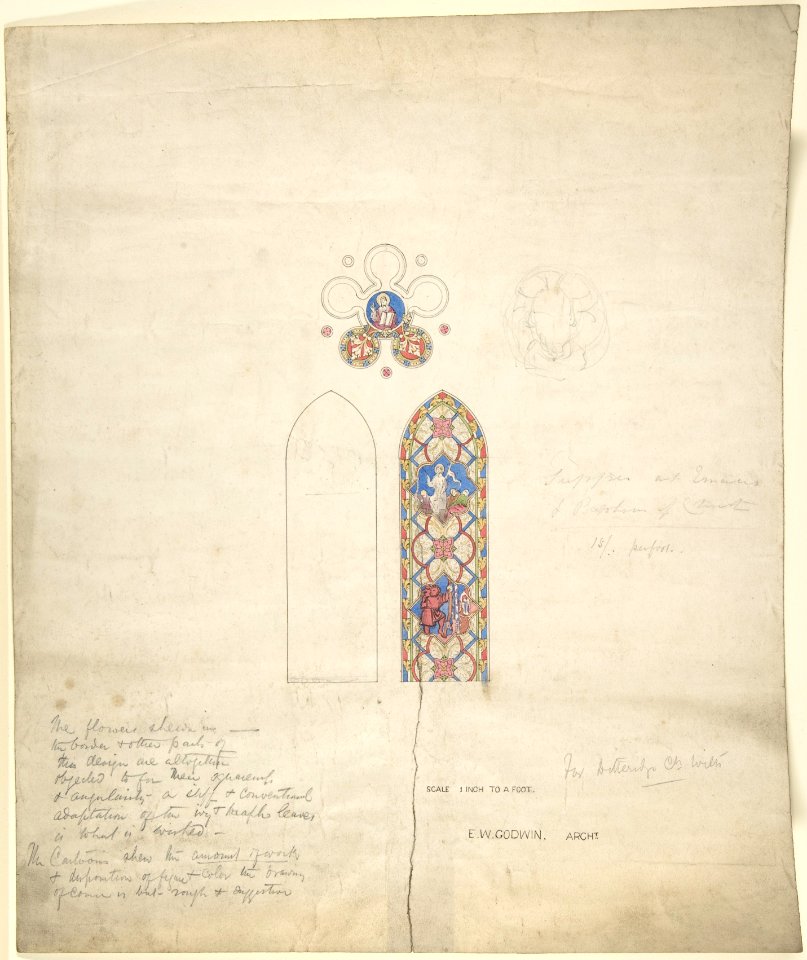 Supper at Emaus
& Baptism of Christ
15/. per foot.
The flowers shewn in
the border & other parts of
this design are altogether
objected to for their squareness
& angularity - a stiff & conventional
adaptation of the ivy & maple leaves
is what is wanted. -
The Cartoons shew the amount of work
& disposition of figure & color the drawing
of course is but rough & suggestive
For Ditteridge Ch Wilts
SCALE 1 INCH TO A FOOT.
E.W.GODWIN. ARCHT.